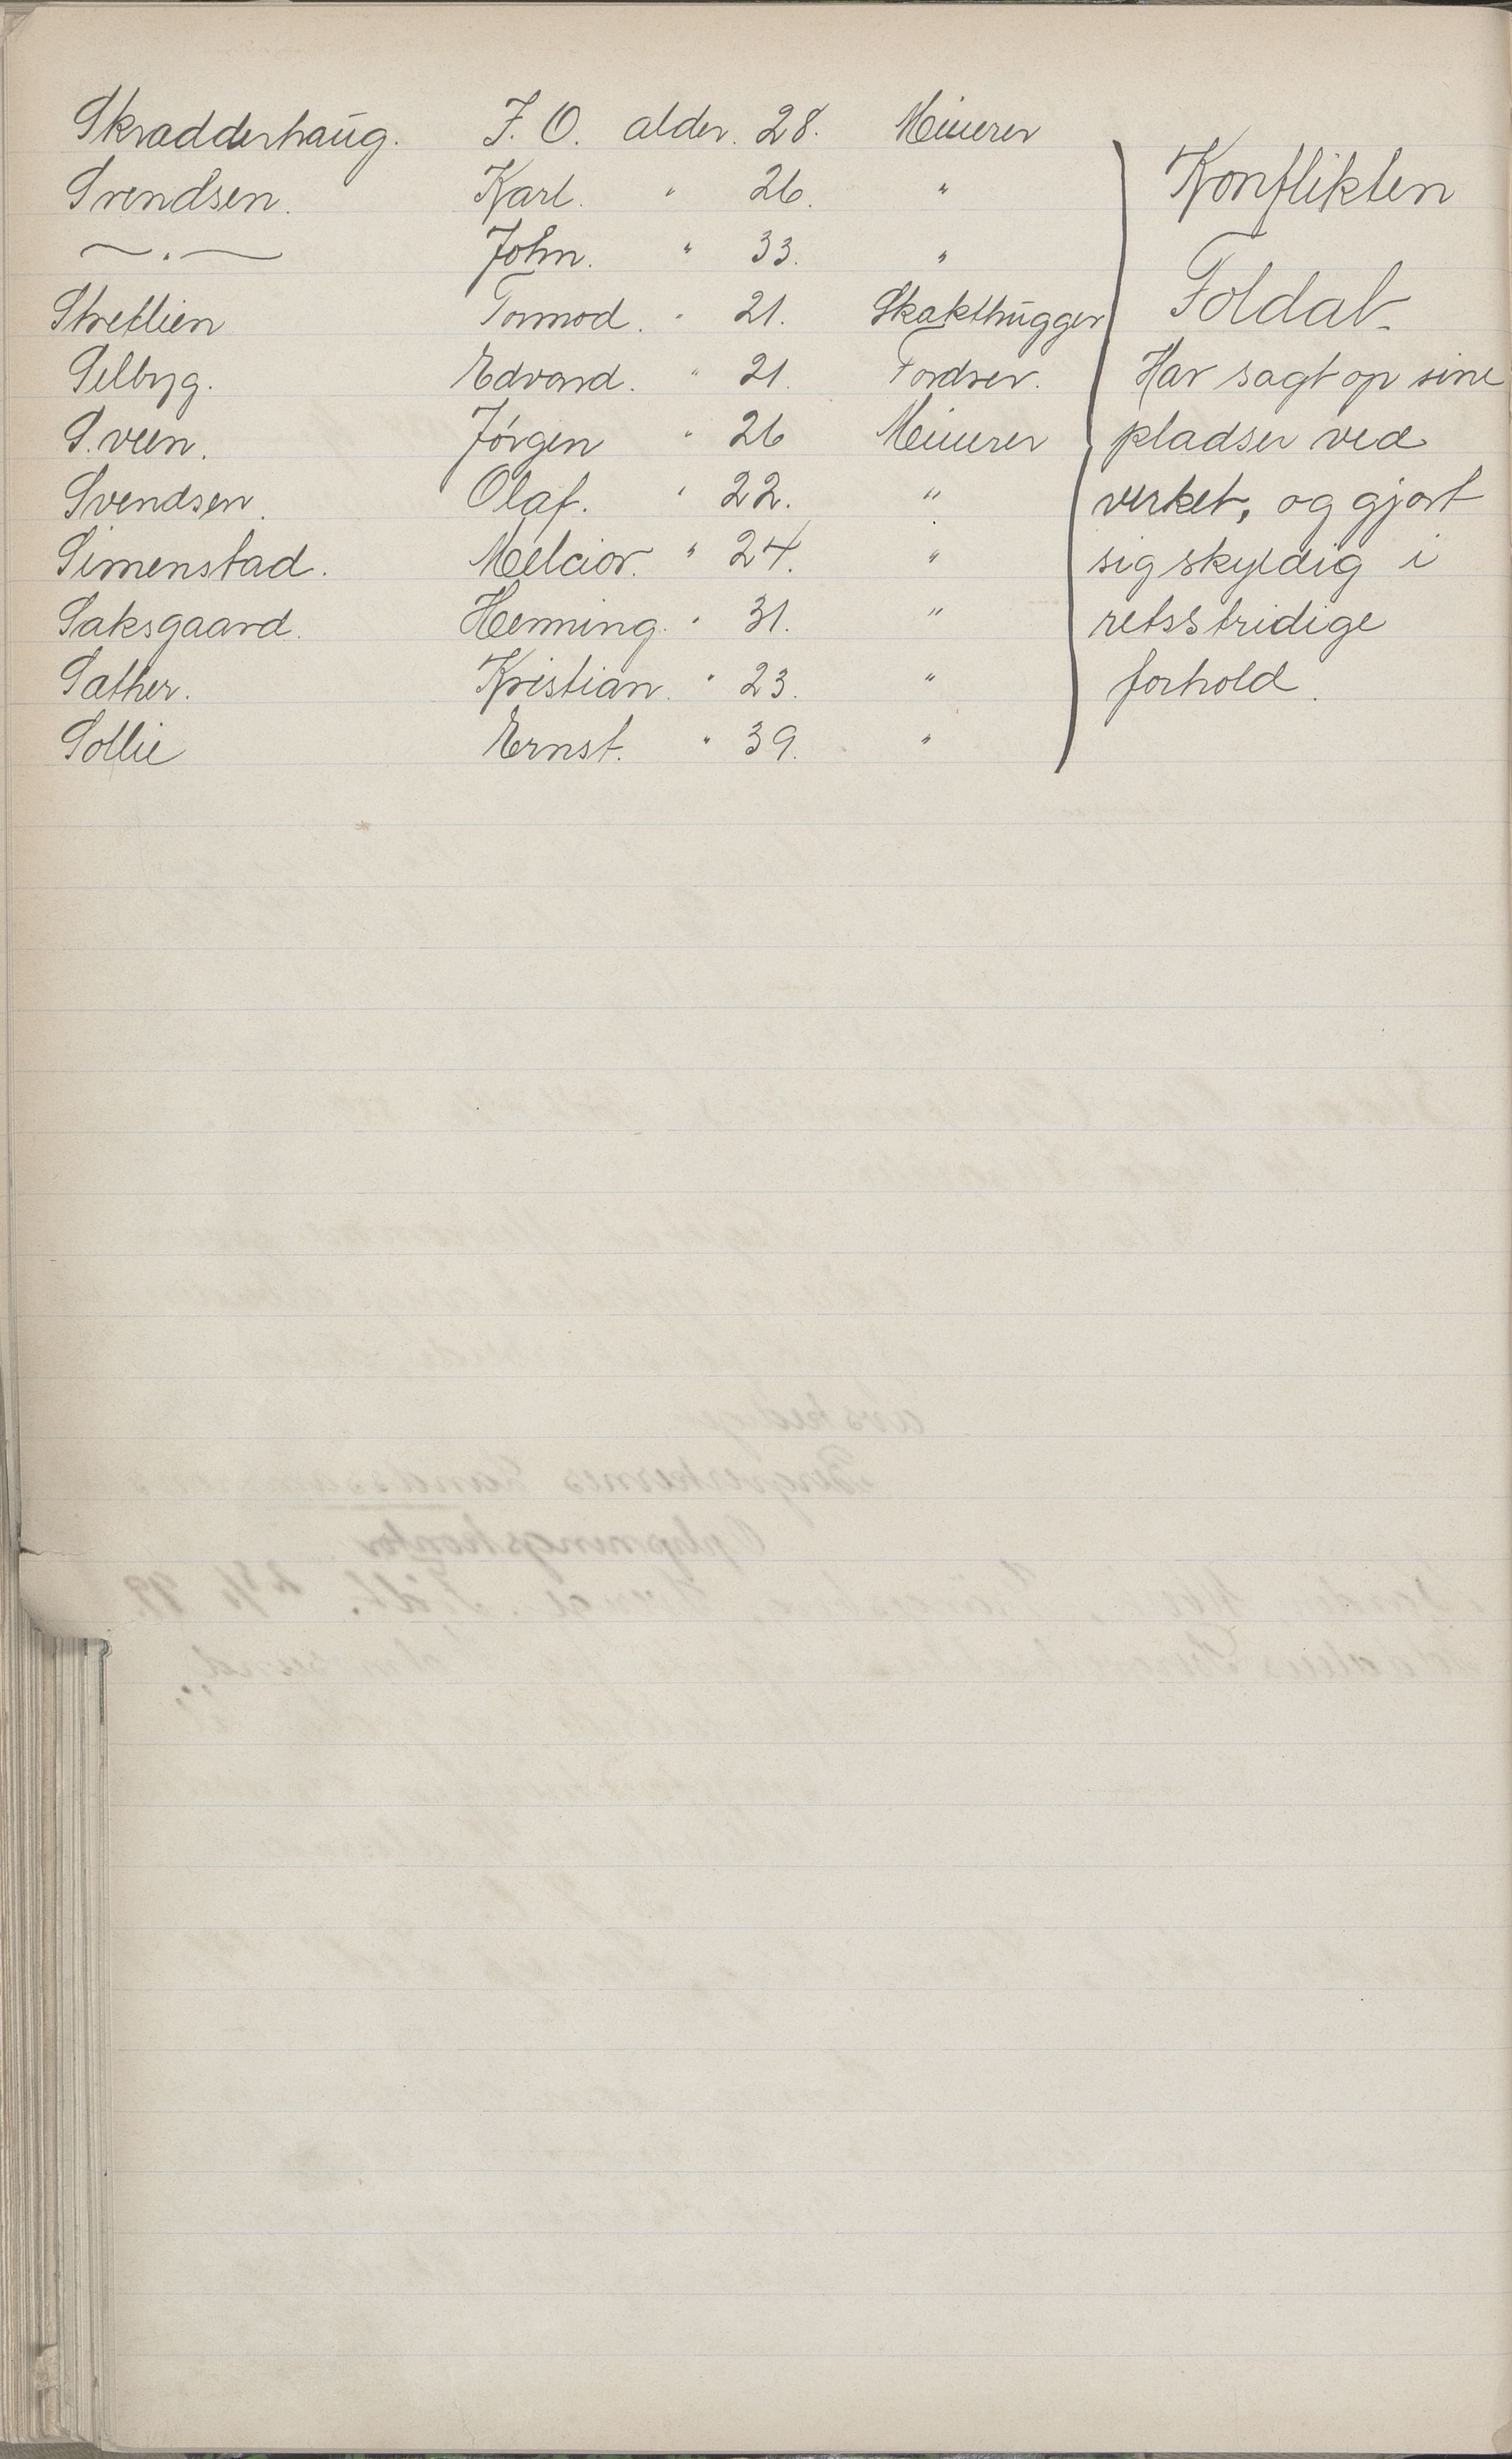 Skradderhaug. J. O. alder. 28. Minerer
Svendsen. Karl. " 26. "
—"— John. " 33. "
Stretlien Tormod. " 21. Skakthugger
Selbyg. Edvard. " 21. Fordrer.
Sveen. Jörgen " 26 Minerer
Svendsen. Olaf. " 22. "
Simenstad. Melcior. " 24. "
Saksgaard. Henning. " 31. "
Sather. Kristian. " 23. "
Sollie Ernst. " 39. "
Konflikten
Foldal.
Har sagt op sine
pladser ved
verket, og gjort
sig skyldig i
retsstridige
forhold.